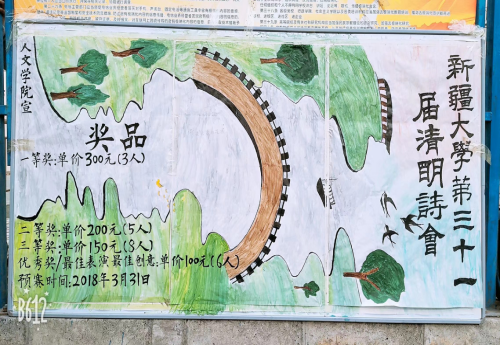 新疆大學第三十一
届清明詩會
人文学院宣
奖品
一等奖:单价300元(3人)
二等奖:单价200元(5人)
三等奖:单价150元(8人)
优秀奖/最佳表演最佳创意:单价100元(6人)
预赛时间:2018年3月31日
B612